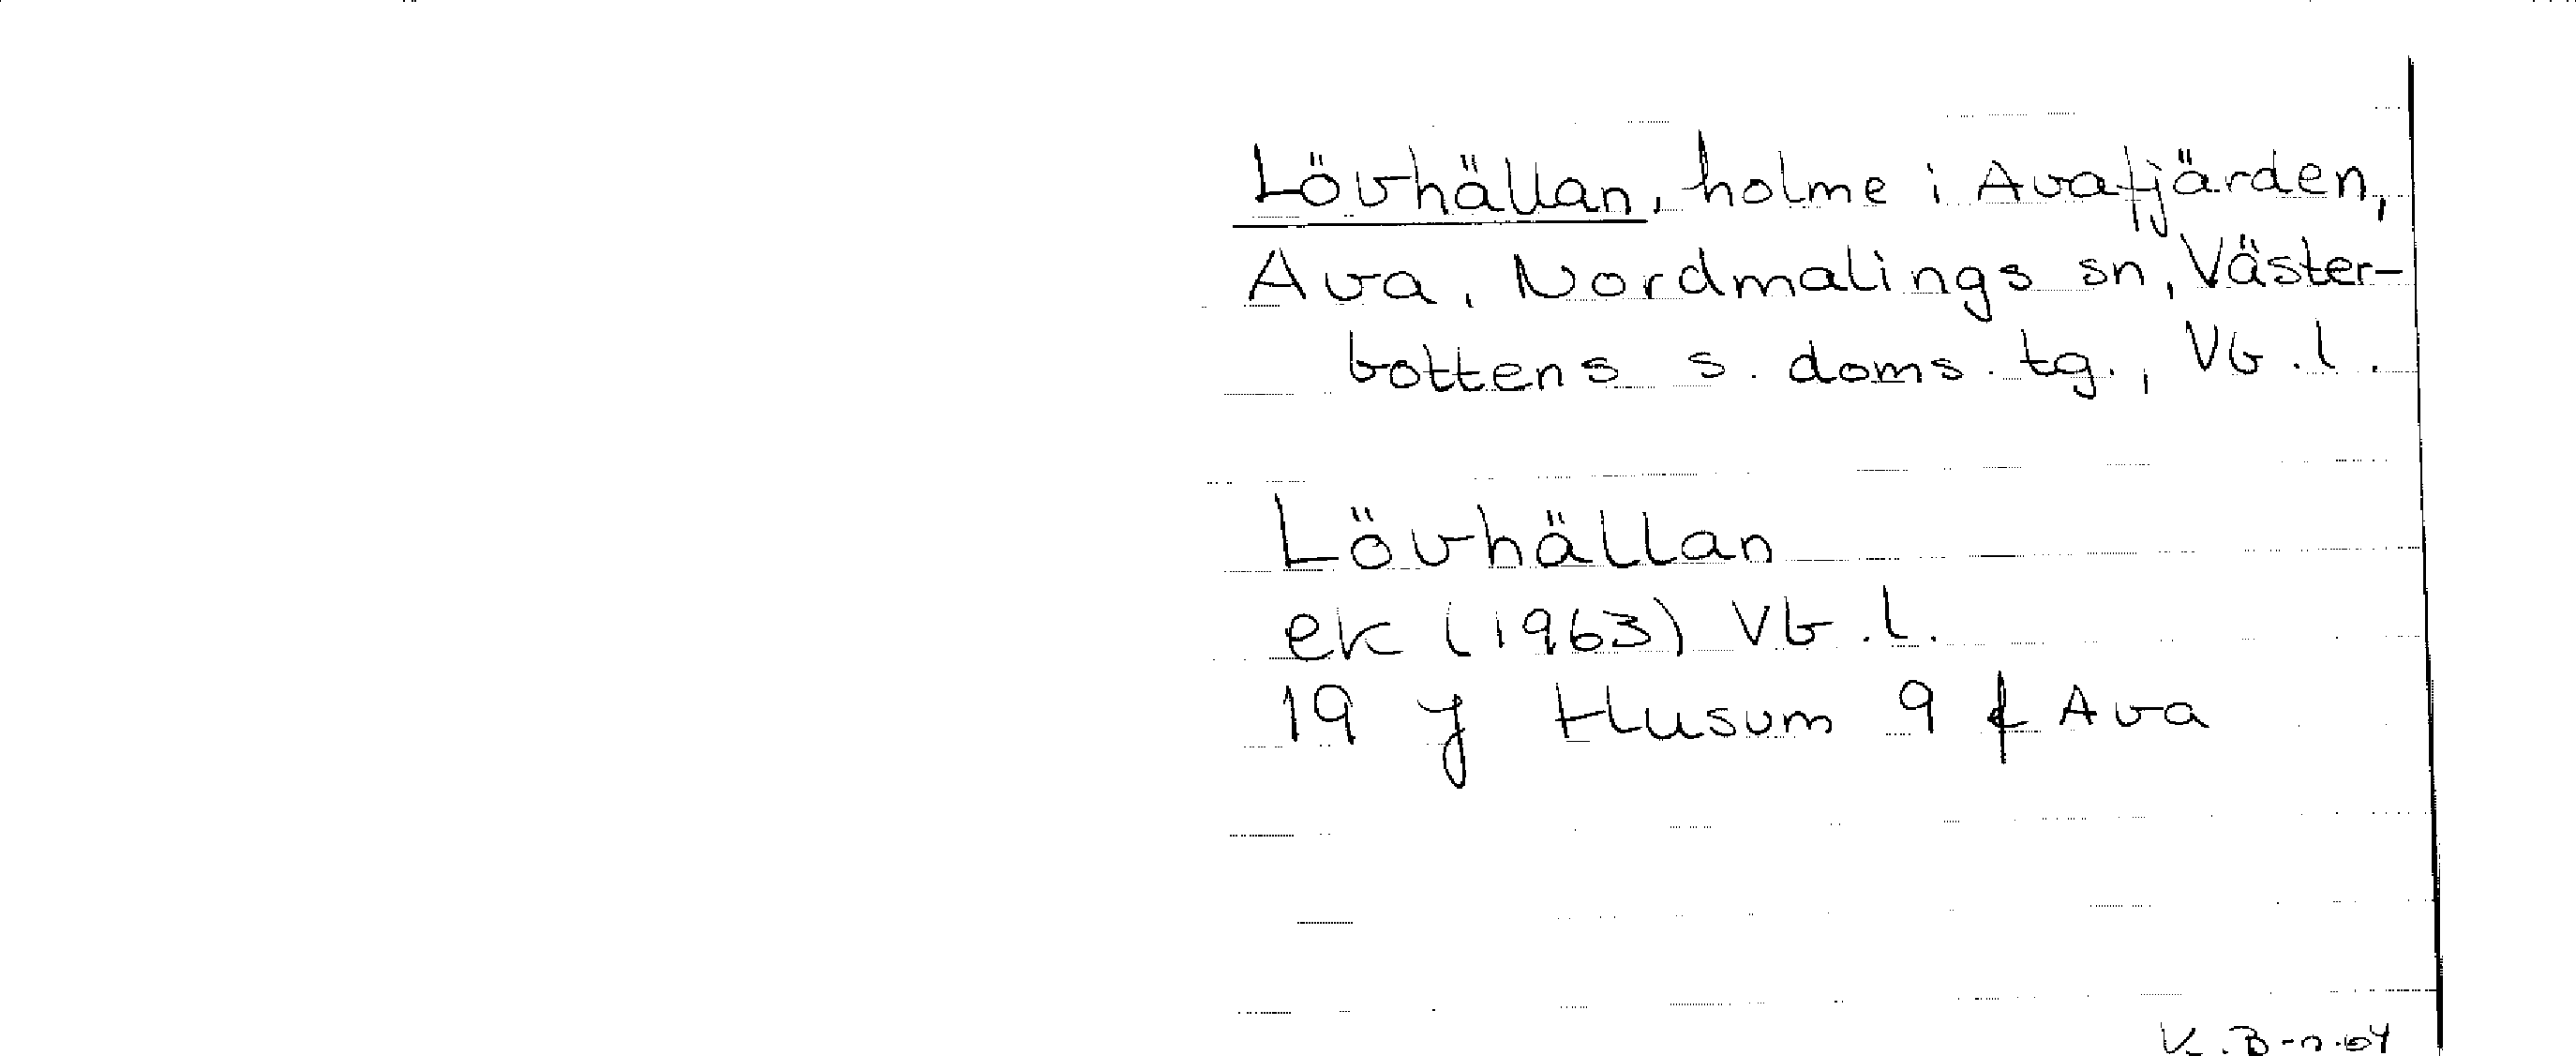 Lövhällan, holme i Avafjärden,
Ava, Nordmalings sn, Väster-
bottens s. doms. tg., Vb.l.
Lövhällan
ek (1963) Vb.l.
19 J Husum 9 f Ava
K.B-n.64